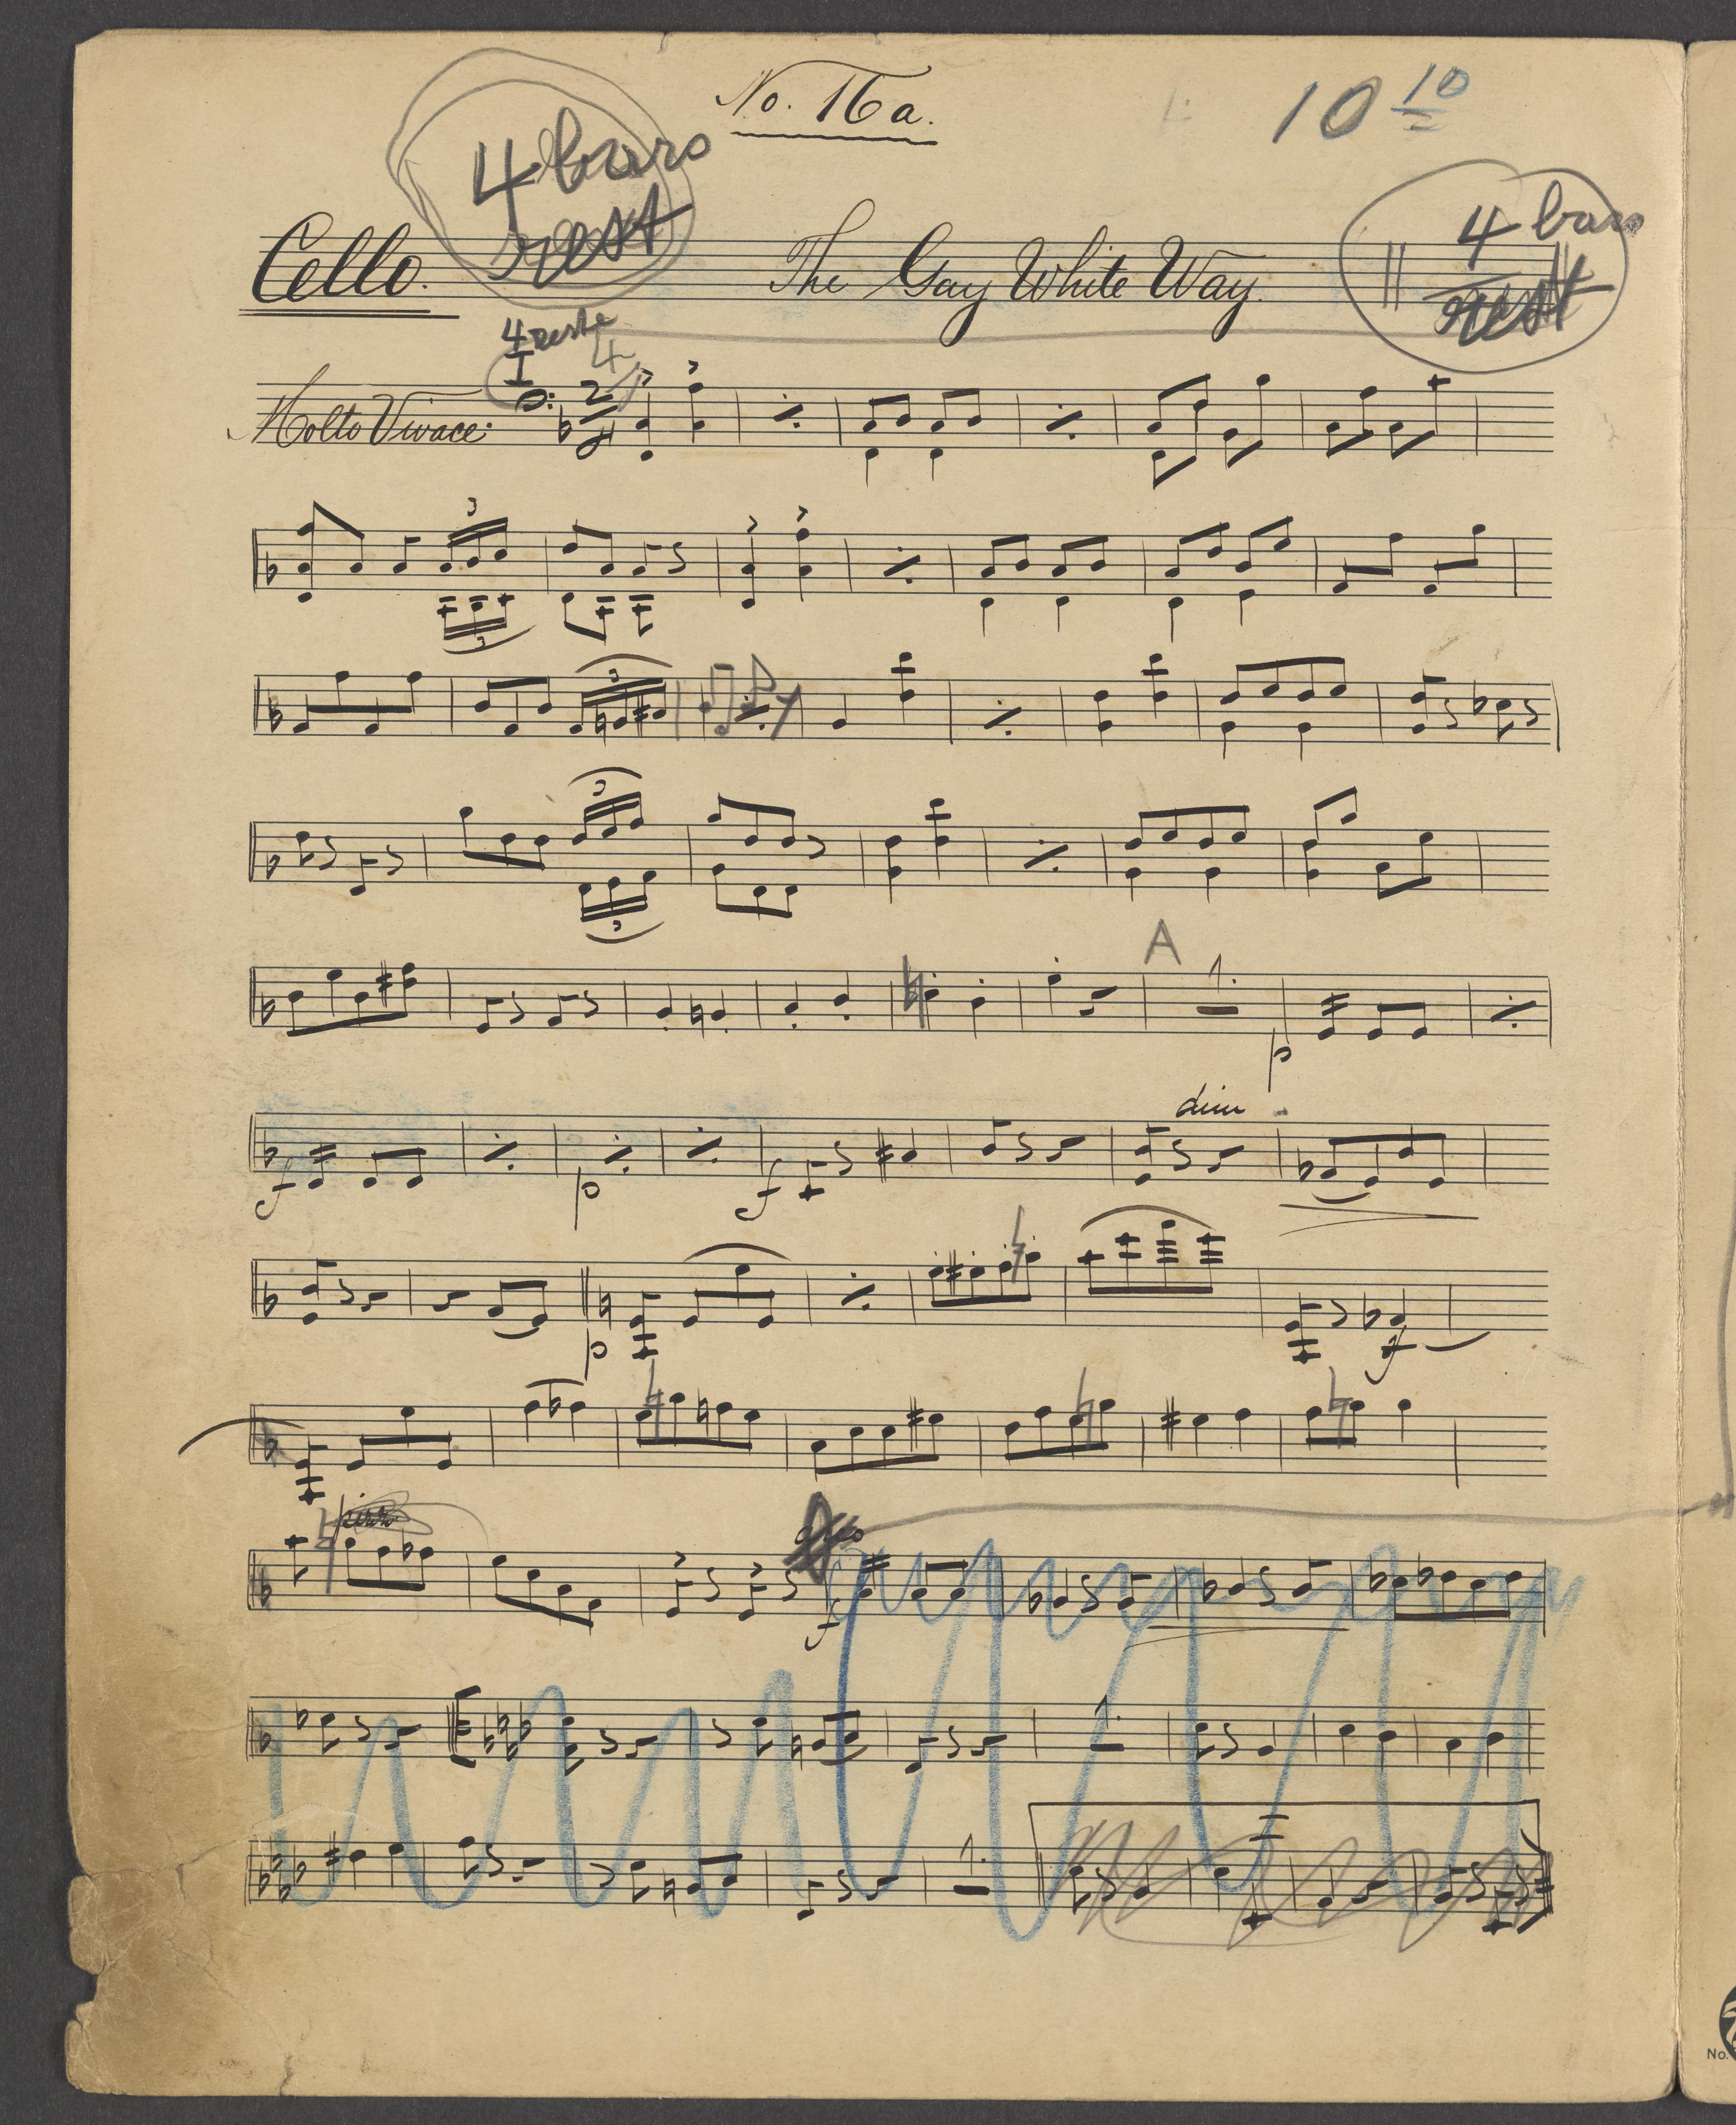 No. 16a.
10 10
4 bars
rest
4 bars
rest
Cello.
The Gay White Way.
4 rests
I
4
Molto Vivace:
2
3
3
3
3
3
A
1.
p
dim
f
p
f
p
f
f
1.
1.
No.